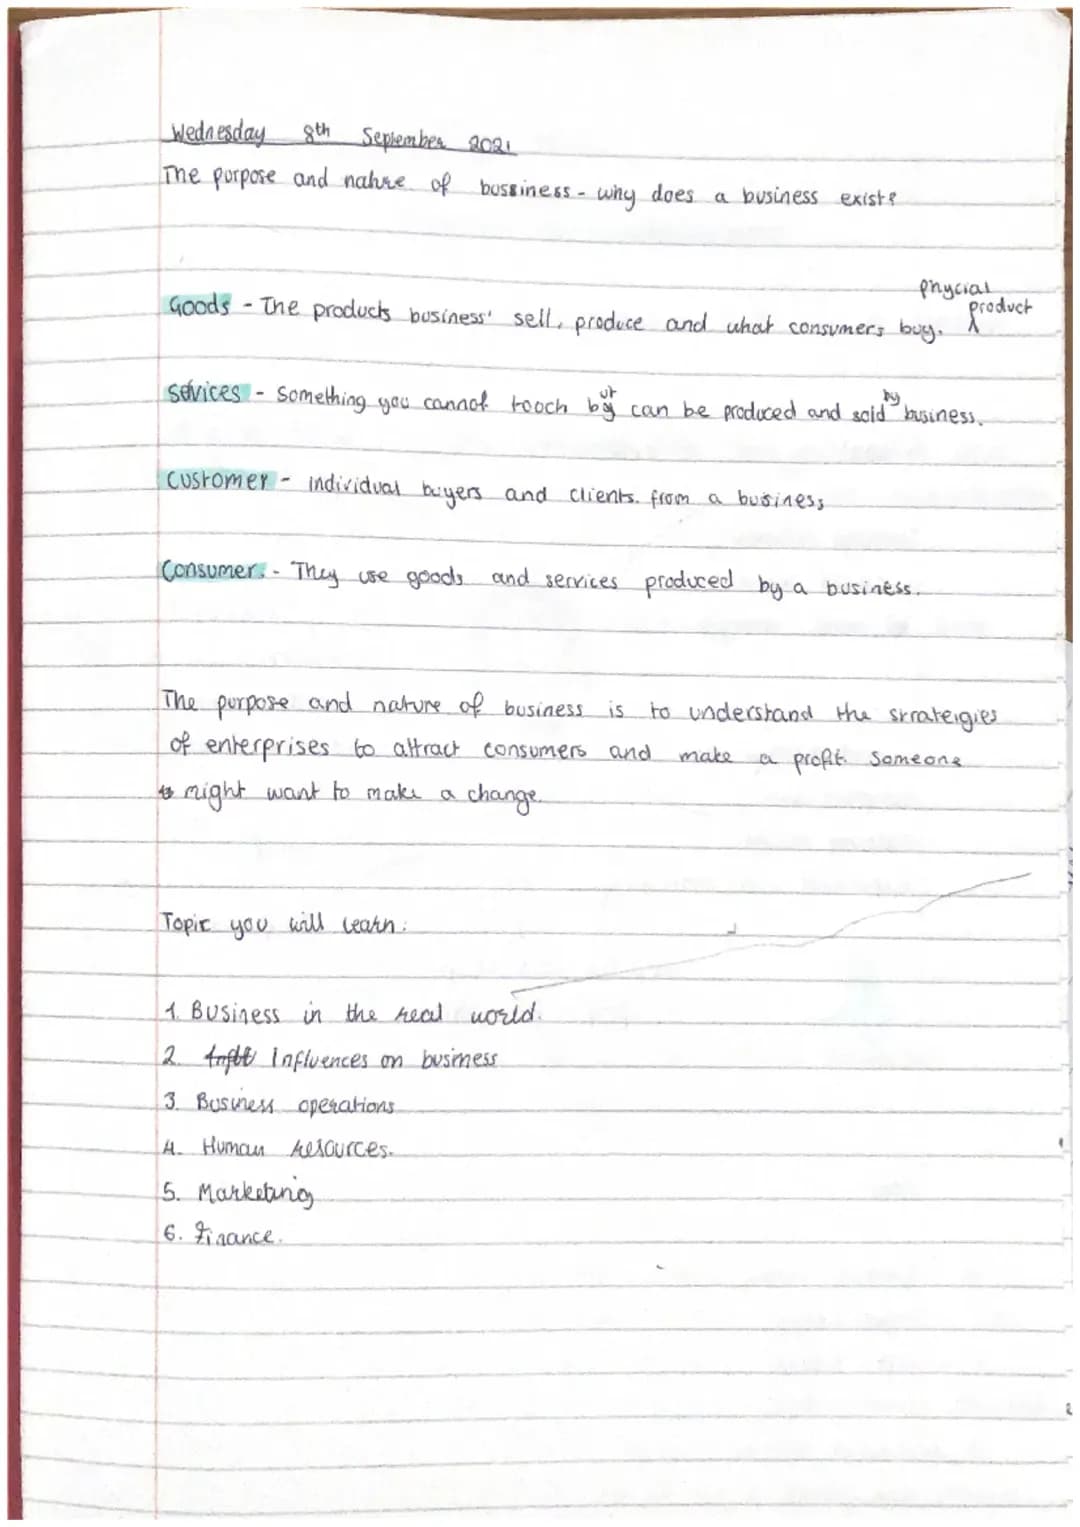 Wednesday 8th September 2021
The purpose and nature of bussiness - why does a business exist?
phycial
product
Goods - The products business' sell, produce and what consumers buy.
Sevices - Something you cannot tooch but can be produced and sold by business.
Customer - individual buyers and clients. from a business
Consumer. - They use goods and services produced by a business.
The purpose and nature of business is to understand the strateigies
of enterprises to attract consumers and make a profit. Someone
might want to make a change.
Topic you will learn:
1. Business in the real world.
2. Influences on business
3. Business operations
4. Human resources.
5. Marketing
6. Finance.